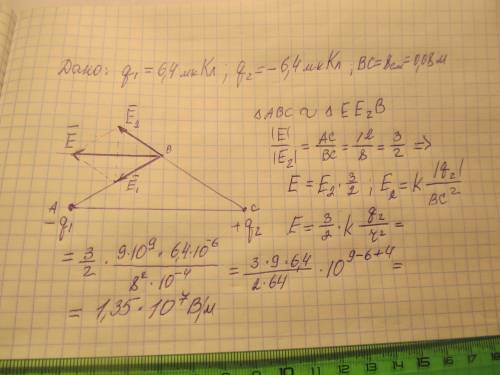 Дано: q₁ = 6,4 мкКл; q₂ = -6,4 мкКл; BC = 8см = 0,08м
E̅₂
E̅
B
E̅₁
A
C
-q₁
+q₂
△ABC ~ △EE₂B
|E|/|E₂| = AC/BC = 12/8 = 3/2 =>
E = E₂ · 3/2; E₂ = k |q₂|/BC²
E = 3/2 · k q₂/r² =
= 3/2 · 9·10⁹ · 6,4·10⁻⁶/8²·10⁻⁴ = 3·9·6,4/2·64 · 10⁹⁻⁶⁺⁴ =
= 1,35 · 10⁷ В/м
10 11 12 13 14 15 16 17 18